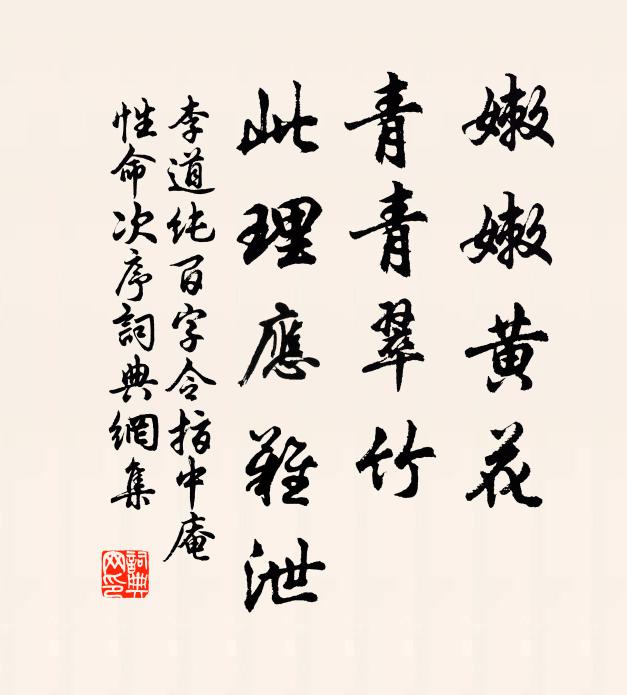 嫩嫩黄花
青青翠竹
此理應難泄
李道纯百字令指中庵
性命次序詞典網集
詞典网印